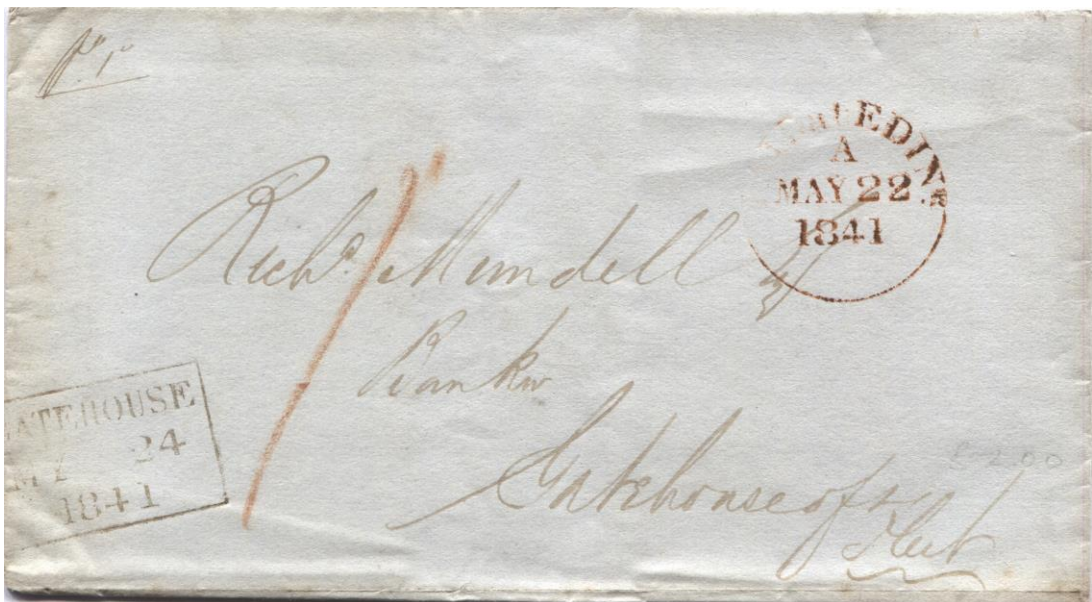 pd 1d
PAID EDINR
A
MAY 22
1841
Richd. Mundell
Banker
Gatehouse of
Fleet
GATEHOUSE
MY 24
1841